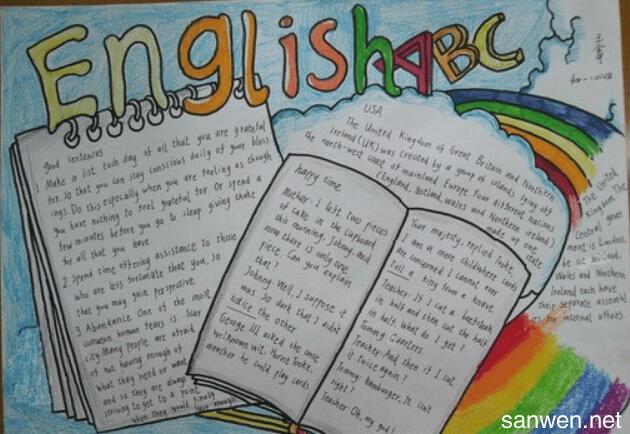 English ABC
good sentences
1. Make a list each day of all that you are grateful
for. so that you can stay conscious daily of your bless
ings. Do this especially when you are feeling as though
you have nothing to feel grateful for. Or spend a
few minutes before you go to sleep giving thanks
for all that you have.
2. Spend time offering assistance to those
who are less fortunate than you, so
that you may gain perspective.
3. Abundance One of the most
common human fears is scar
city. Many people are afraid
of not having enough of
what they need or want
and so they are always
striving to get to a point
when they would finally
have enough
happy time
Mother: I left two pieces
of cake in the cupboard
this morning, Johnny, and
now there is only one
piece. Can you explain
that?
Johnny: Well, I suppose it
was so dark that I didn't
notice the other
George III, asked the once
well known wit. Horne Tooke.
weather he could play cards
Your majesty, replied Tooke,
I am a mere child where cards
are concerned I cannot even
tell a king from a knave
Teacher: If I cut a beefsteak
in half and then cut the half
in half. What do I get?
Tommy: Quarters.
Teacher: And then if I cut
it twice again?
Tommy: Hamburger. It isn't
right?
Teacher: Oh, my god!
USA
The United Kingdom of Great Britain and Northern
Ireland (UK) was created by a group of islands lying off
the north-west coast of mainland Europe. Four different nations
(England, Scotland, Wales and Northern Ireland)
made up one
state
The United
Kingdom The
Central gover
ment is London,
Wales and Northern
Ireland each have
their separate assembl
ies for internal affairs.
sanwen.net